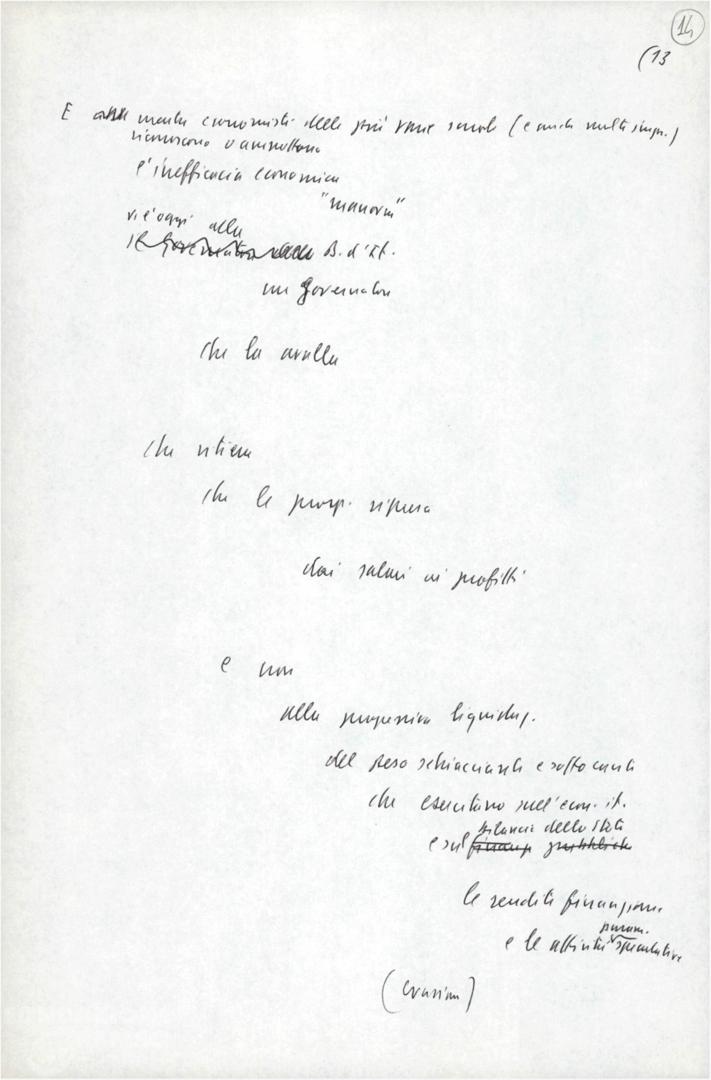 14
(13
E mentre economisti delle più varie scuole (e anche molti impr.)
riconoscono o ammettono
l'inefficacia economica
"manovra"
vi è oggi alla
il Governatore della B. d'It.
un Governatore
che la avalla
che ritiene
che le prosp. ripresa
dai salari ai profitti
e non
alla progressiva liquidaz.
del peso schiacciante e soffocante
che esercitano sull'econ. it.
bilancio dello Stato
e sul finanze pubbliche
le rendite finanziarie
param.
e le attività speculative
(evasione)